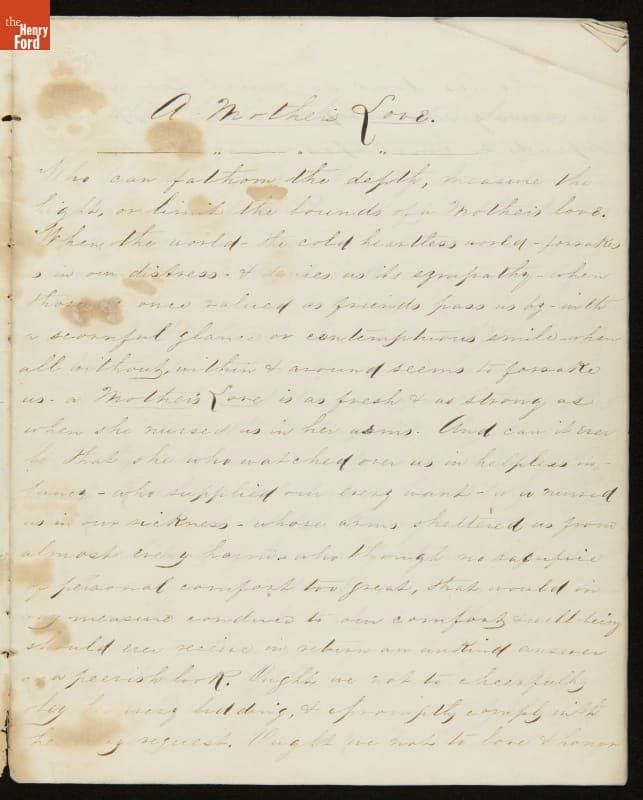 the
Henry
Ford
A Mother's Love.
Who can fathom the depth, measure the
hight, or limit the bounds of a Mother's love.
When the world - the cold heartless world - forsakes
us in our distress - & denies us its sympathy - when
those we once valued as friends pass us by - with
a scornful glance or contemptuous smile - when
all without, within & around seems to forsake
us - a Mother's Love is as fresh & as strong as
when she nursed us in her arms. And can it ever
be that she who watched over us in helpless in-
fancy - who supplied our every want - who nursed
us in our sickness - whose arms sheltered us from
almost every harm - who thought no sacrifice
of personal comfort too great, that would in
any measure conduce to our comfort & well being
should ever receive in return an unkind answer
or a peevish look. Ought we not to cheerfully
obey her every bidding, & promptly comply with
her every request. Ought we not to love & honor